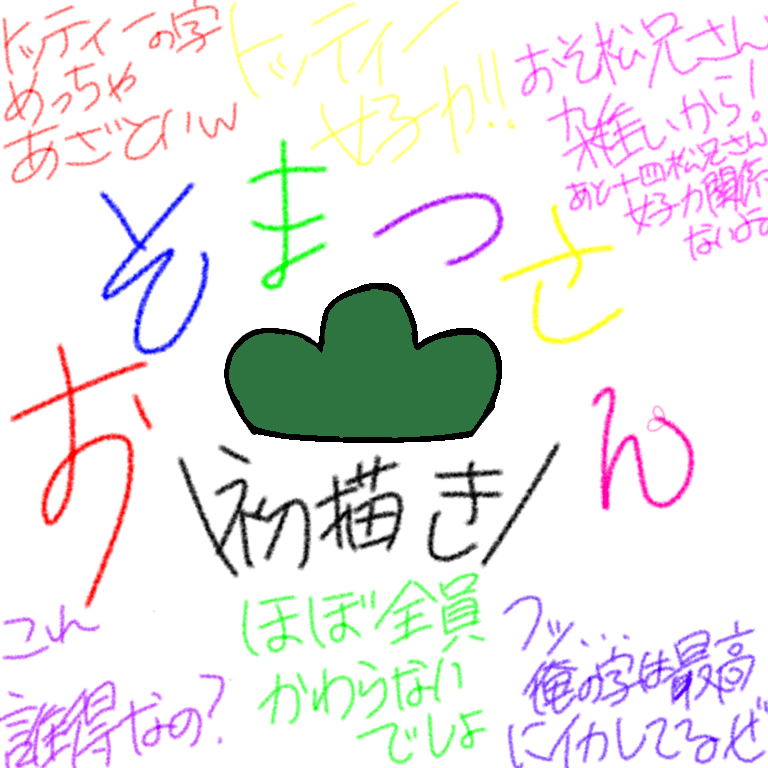 トッティーの字
めっちゃ
あざといw
トッティー
好カ!!
おそ松兄さん
雑いから!
あと十四松兄さん
好カ関係
ないよ
おそまつさん
\初描き/
これ
誰得なの?
ほぼ全員
かわらない
でしょ
フッ…
俺の字は最高
にイカしてるぜ